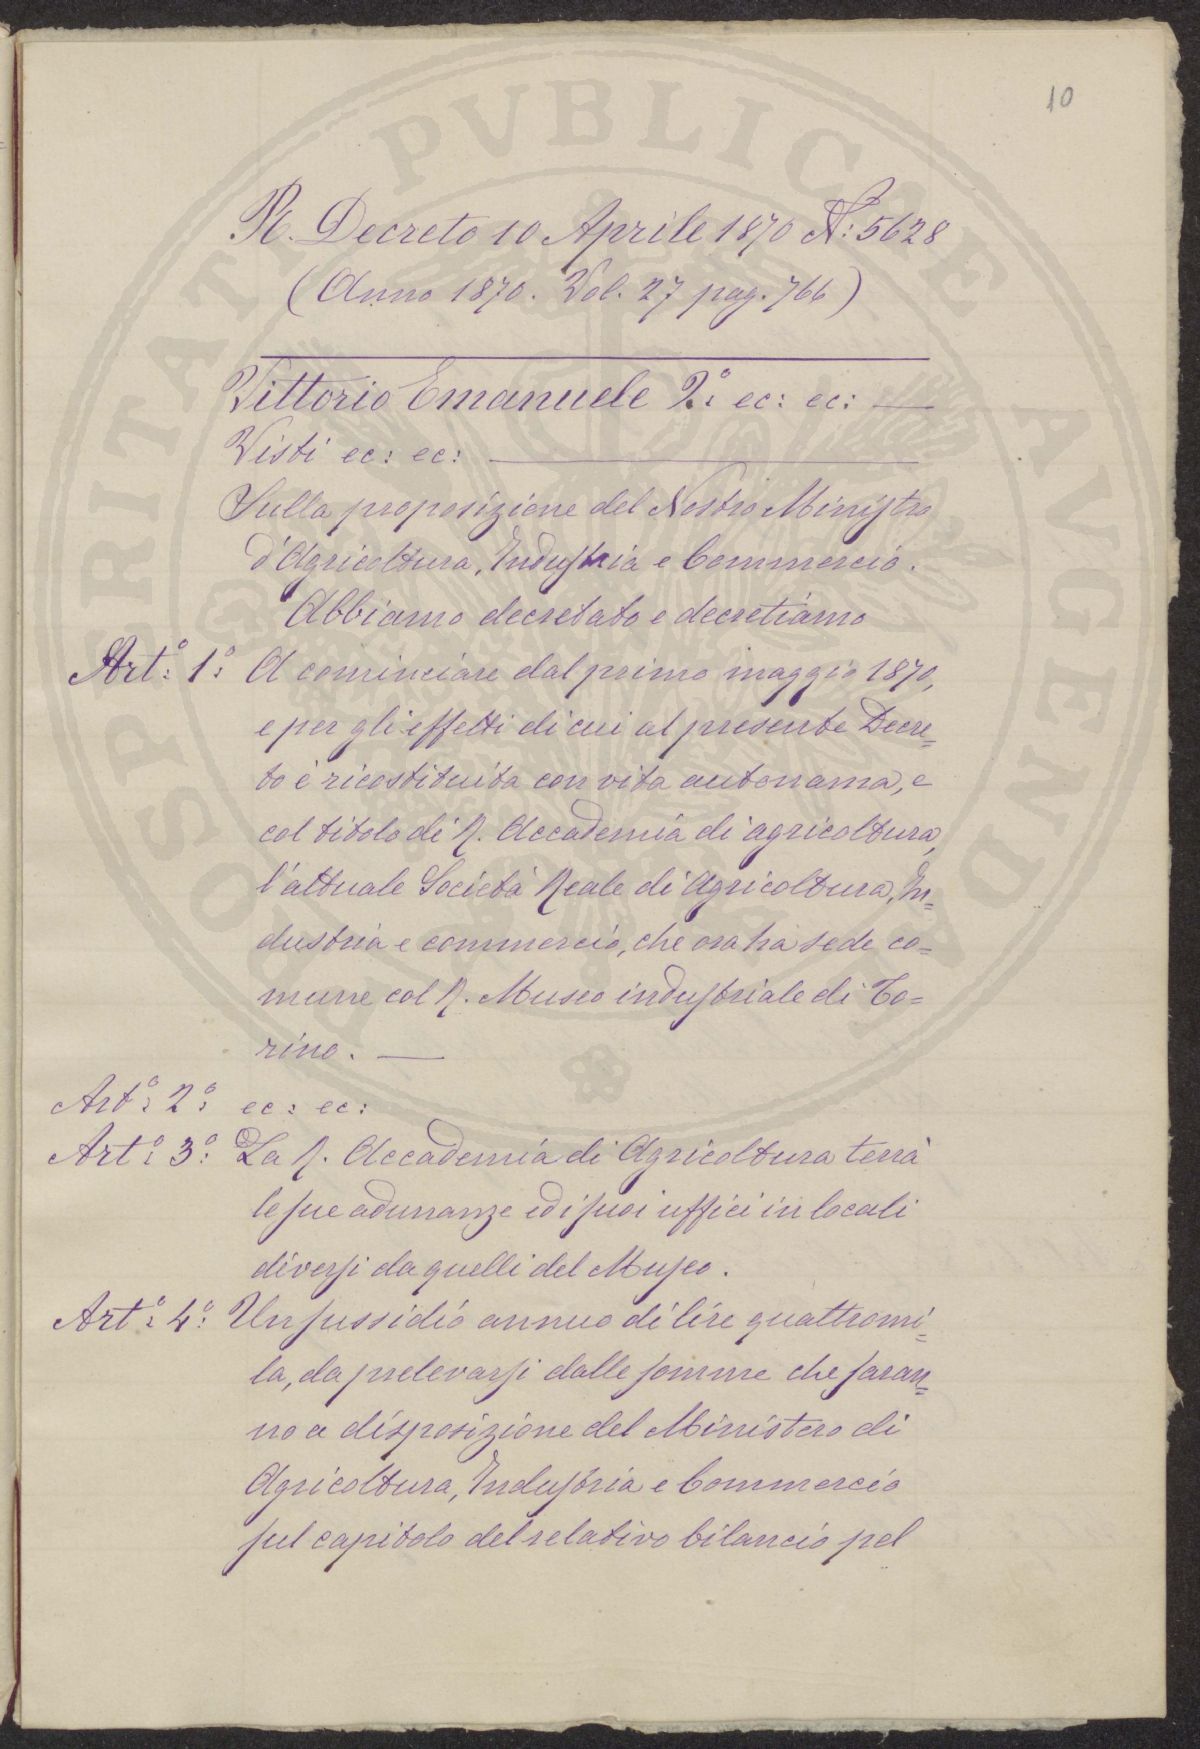 10
R. Decreto 10 Aprile 1870 N: 5628
(Anno 1870. Vol. 27 pag. 766)
Vittorio Emanuele 2.° ec: ec: —
Visti ec: ec: —
Sulla proposizione del Nostro Ministro
d'Agricoltura, Industria e Commercio.
Abbiamo decretato e decretiamo
Art.° 1.° A cominciare dal primo maggio 1870,
e per gli effetti di cui al presente Decre=
to è ricostituita con vita autonama, e
col titolo di R. Accademia di agricoltura,
l'attuale Società Reale di Agricoltura, In=
dustria e commercio, che ora ha sede co=
mune col R. Museo industriale di To=
rino. —
Art.° 2.° ec: ec:
Art.° 3.° La R. Accademia di Agricoltura terrà
le sue adunanze ed i suoi uffici in locali
diversi da quelli del Museo.
Art.° 4.° Un sussidio annuo di lire quattromi=
la, da prelevarsi dalle somme che saran=
no a disposizione del Ministero di
Agricoltura, Industria e Commercio
sul capitolo del relativo bilancio pel
PROSPERITATI PVBLICAE AVGENDAE